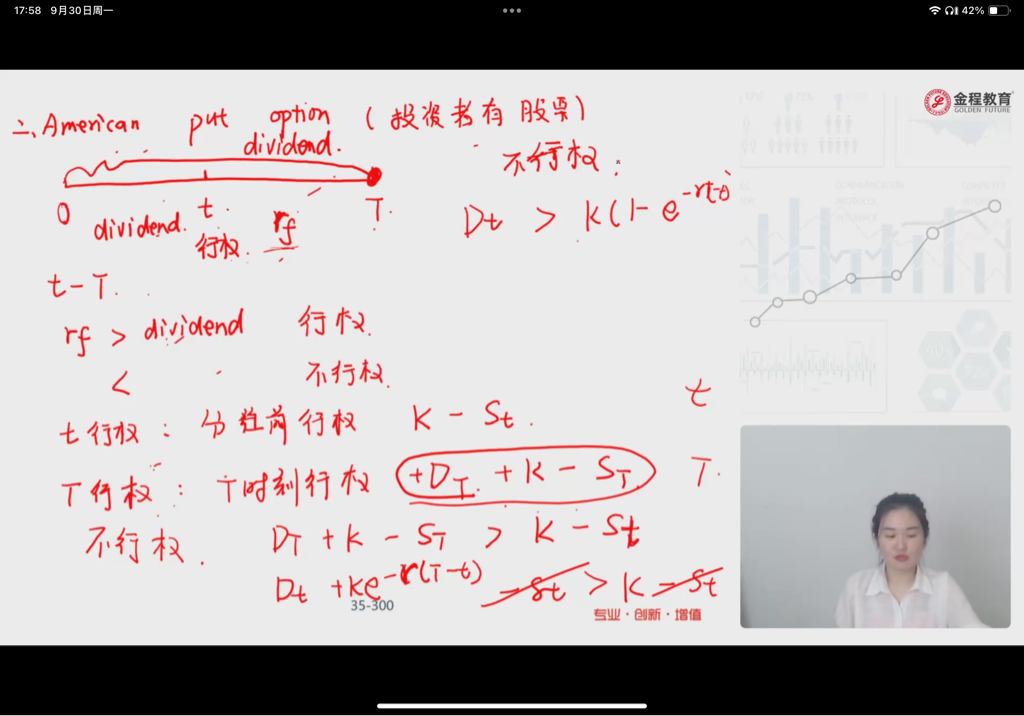 17:58 9月30日周一
42%
金程教育
GOLDEN FUTURE
二、American put option (投资者有股票)
dividend.
不行权:
0 t. T.
dividend. rf
行权.
Dt > K(1-e^-r(T-t)
t-T.
rf > dividend 行权.
< 不行权.
t行权: 分红前行权 K - St. t
T行权: T时刻行权 +DT. + K - ST. T.
不行权. DT + K - ST > K - St
Dt + Ke^-r(T-t) - St > K - St
35-300
专业·创新·增值